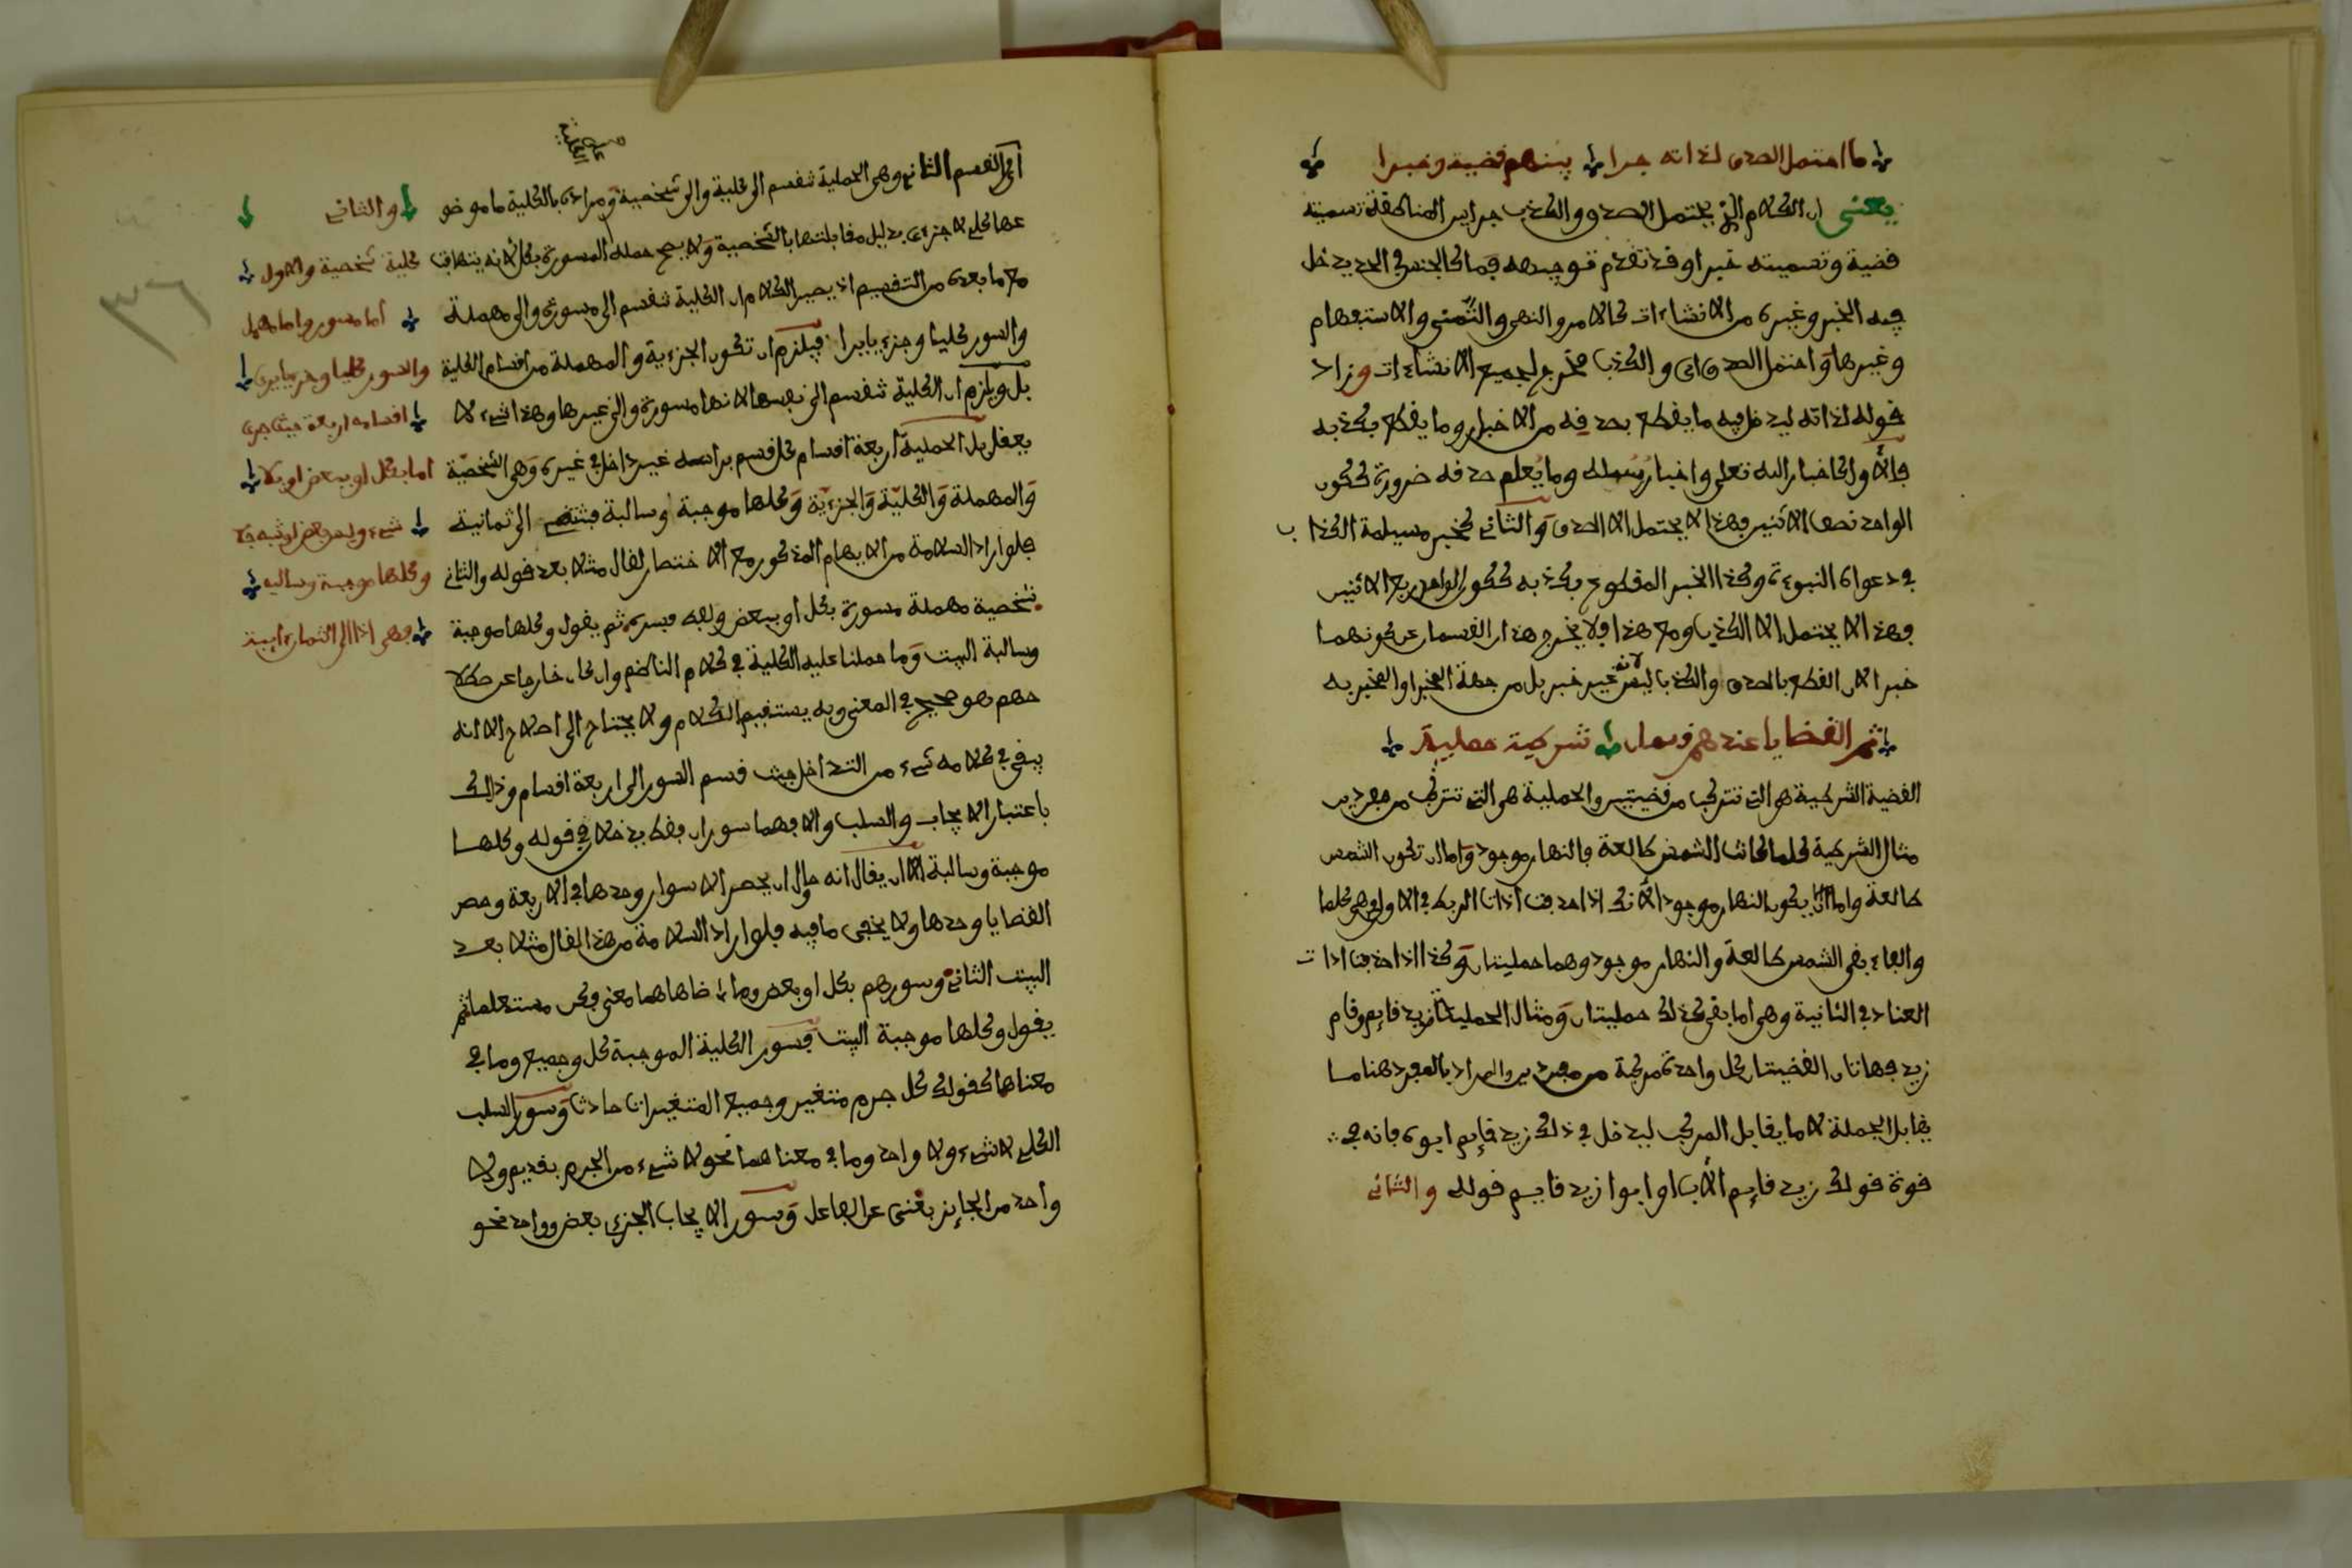 ما احتمل الصدق لذاته جرا بينهم قضية وخبرا
يعني ان الكلام الذي يحتمل الصدق والكذب جرا بين المناطقة تسميته
قضية وتسميته خبرا وقد تقدم توجيهه فما كالجنس في الحد يدخل
فيه الخبر وغيره من الانشاءات كالامر والنهي والتمني والاستفهام
وغيرها واحتمل الصدق اي والكذب مخرج لجميع الانشاءات وزاد
قوله لذاته ليدخل فيه ما يقطع بصدقه من الاخبار وما يقطع بكذبه
فالأول كاخبار الله تعلى واخبار رسله وما يعلم صدقه ضرورة ككون
الواحد نصف الاثنين فهذا لا يحتمل الا الصدق والثاني كخبر مسيلمة الكذاب
في دعواه النبوءة وكذا الخبر المقطوع بكذبه ككون الواحد ربع الاثنين
فهذا لا يحتمل الا الكذب ومع هذا فلا يخرج هذان القسمان عن كونهما
خبرا لان القطع بالصدق والكذب ليس لانه غير خبر بل من جهة المخبر او المخبر به
ثم القضايا عندهم قسمان شرطية حملية
القضية الشرطية هي التي تتركب من قضيتين والحملية هي التي تتركب من مفردين
مثال الشرطية كلما كانت الشمس طالعة فالنهار موجود واما ان تكون الشمس
طالعة واما ان يكون النهار موجودا لأنك اذا حذفت اداة الربط في الاولى وهي كلما
والفاء بقي الشمس طالعة والنهار موجود وهما حمليتان وكذا اذا حذفت ادات
العناد في الثانية وهي اما بقي كذلك حمليتان ومثال الحملية زيد قايم وقام
زيد فهاتان القضيتان كل واحدة مركبة من مفردين والمراد بالمفرد هنا ما
يقابل الجملة لا ما يقابل المركب ليدخل في ذلك زيد قايم ابوه فانه في
قوة قولك زيد قايم الأب او ابوا زيد قايم قوله والثاني
اي القسم الثاني وهي الحملية تنقسم الى كلية والى شخصية ومراده بالكلية ما موضو
عها كلي لا جزءي بدليل مقابلتها بالشخصية ولا يصح حمله المسورة بكل لانه يتهافت
مع ما بعده من التقسيم اذ يصير الكلام ان الكلية تنقسم الى مسورة والى مهملة
والسور كليا وجزءيا يرا فيلزم ان تكون الجزءية والمهملة من اقسام الكلية
بل ويلزم ان الكلية تنقسم الى نفسها لانها مسورة والى غيرها وهذا شيء لا
يعقل بل الحملية اربعة اقسام كل قسم براسه غير داخل في غيره وهي الشخصية
والمهملة والكلية والجزءية وكلها موجبة وسالبة فتنتهي الى ثمانية
فلو اراد السلامة من الايهام المذكور مع الاختصار لقال مثلا بعد قوله والثاني
شخصية مهملة مسورة بكل او ببعض ثم يقول وكلها موجبة
وسالبة البيت وما حملنا عليه الكلية في كلام الناظم وان كان خارجا عن اصطلا
حهم هو صحيح في المعنى وبه يستقيم الكلام ولا يحتاج الى اصلاح الا انه
يبقى في كلامه شيء من التداخل حيث قسم السور الى اربعة اقسام وذلك
باعتبار الايجاب والسلب والا فهما سوران فقط يدخلان في قوله وكلها
موجبة وسالبة الا ان يقال انه حاول ان يحصر الاسوار وحدها في الاربعة وحصر
القضايا وحدها ولا يخفى ما فيه فلو اراد السلامة من هذا لقال مثلا بعد
البيت الثاني وسورهم بكل او بعض وما ضاهاهما معنى مستعلما ثم
يقول وكلها موجبة البيت فسور الكلية الموجبة كل وجميع وما في
معناها كقولك كل جرم متغير وجميع المتغيرات حادث وسور السلب
الكلي لا شيء ولا واحد وما في معناهما نحو لا شيء من الجرم بقديم ولا
واحد من الجايز بغني عن الفاعل وسور الايجاب الجزءي بعض وواحد نحو
والثاني
كلية شخصية والاول
اما مسور واما مهمل
والسور كليا وجزءيا يرى
اقسامه اربعة حيث جرى
اما بكل او ببعض او بلا
شيء وليس بعض او شبه جلا
وكلها موجبة وسالبه
فهي اذا الى الثمان ءايبة
٣٦